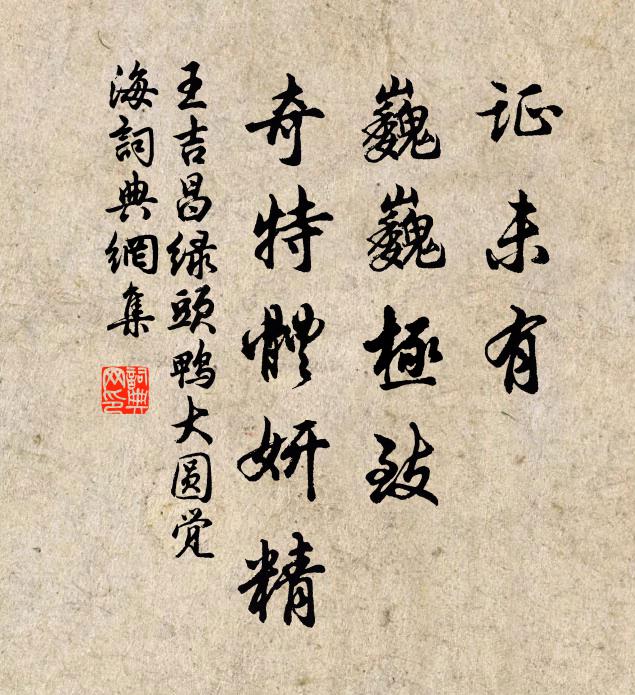 证未有
巍巍極致
奇特體妍精
王吉昌緑頭鴨大圆觉
海詞典網集
詞典網印